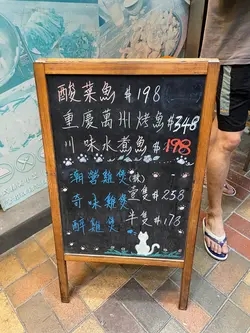 酸菜魚 $198
重慶萬州烤魚 $348
川味水煮魚 $198
潮蟹雞煲(辣)
奇味雞煲 壹隻 $258
醉雞煲 半隻 $173